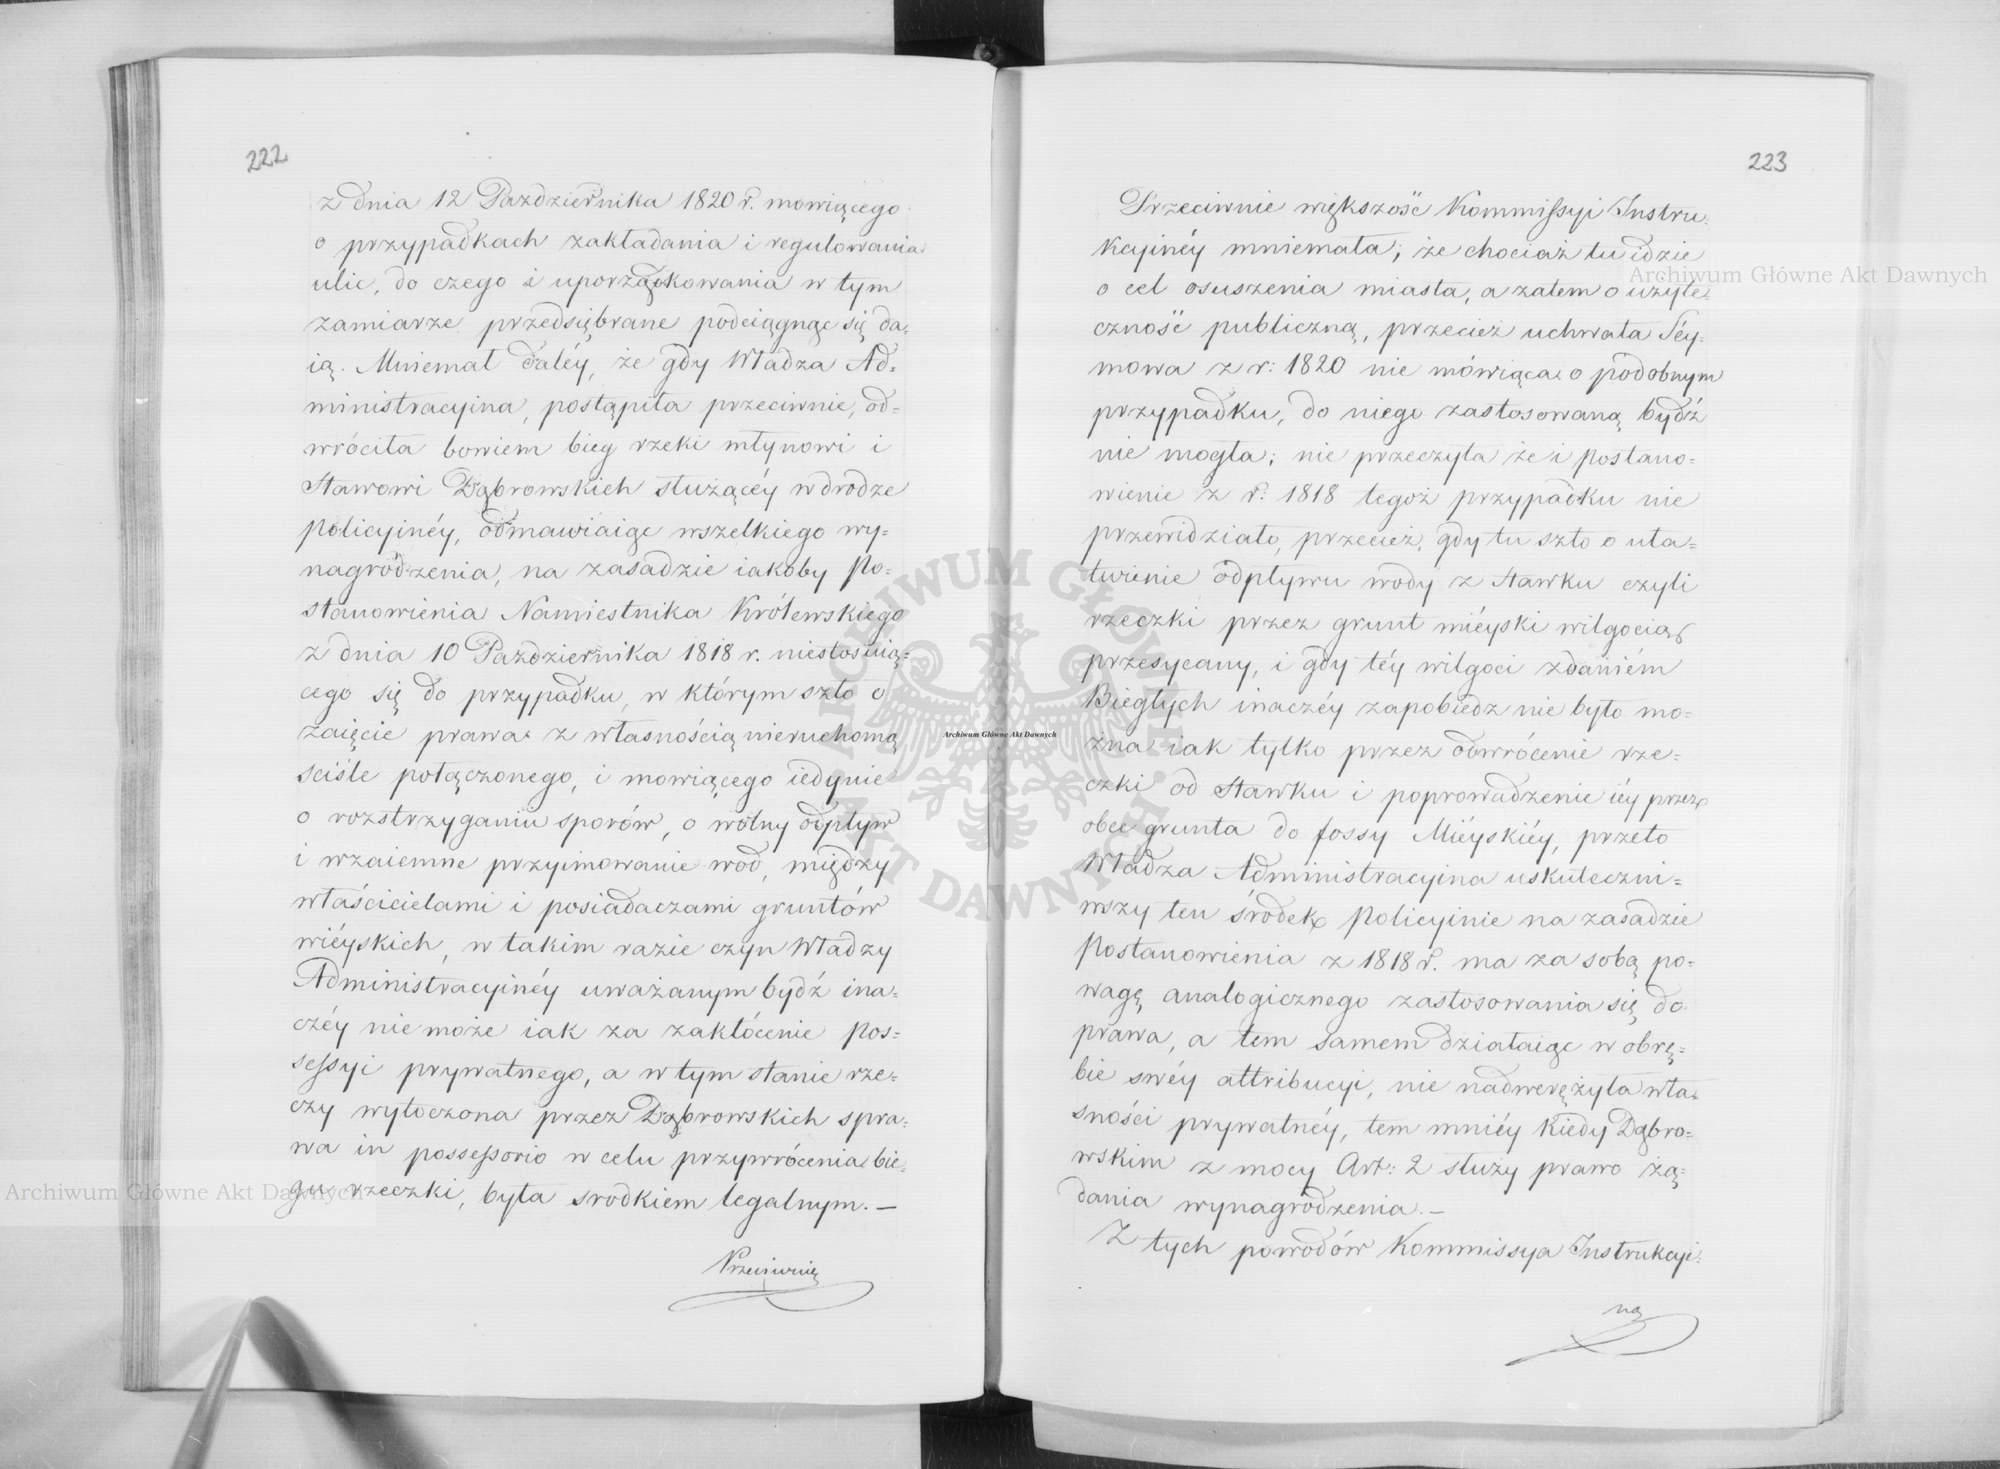 222
z dnia 12 Pazdziernika 1820 r. mowiącego
o przypadkach zakładania i regulowania
ulic, do czego i uporządkowania w tym
zamiarze przedsięwbrane podciągnąć się da-
ią. Mniemał daléy, że gdy Władza Ad-
ministracyina, postąpiła przeciwnie, od=
wróciła bowiem bieg rzeki młynowi i
Stawowi Dąbrowskich służącéy w drodze
policyinéy, odmawiaiąc wszelkiego wy-
nagrodzenia, na zasadzie iakoby Po-
stanowienia Namiestnika Królewskiego
z dnia 10 Pazdziernika 1818 r. niestosuią-
cego się do przypadku, w którym szło o
zaięcie prawa z własnością nieruchomą
sciśle połączonego, i mowiącego iedynie
o rozstrzyganiu sporów, o wolny odpływ
i wzaiemne przyimowanie wod, między
właścicielami i posiadaczami gruntów
wiéyskich, w takim razie czyn Władzy
Administracyinéy uważanym bydź ina-
czéy nie może iak za zakłócenie pos=
sessyi prywatnego, a w tym stanie rze-
czy wytoczona przez Dąbrowskich spra-
wa in possessorio w celu przywrócenia bie-
gu rzeczki, była srodkiem legalnym. —
Przeciwnie
223
Przeciwnie większość Kommissyi Instru-
kcyinéy mniemała; że chociaż tu idzie
o cel osuszenia miasta, a zatem o użyte-
czność publiczną, przecież uchwała Séy-
mowa z r: 1820 nie mówiąca o podobnym
przypadku, do niego zastosowaną bydź
nie mogła; nie przeczyła że i postano=
wienie z r: 1818 tegoż przypadku nie
przewidziało, przecież, gdy tu szło o uła=
twienie odpływu wody z stawku czyli
rzeczki przez grunt miéyski wilgocią
przesycany, i gdy téy wilgoci zdaniém
Biegłych inaczéy zapobiedz nie było mo=
żna iak tylko przez odwrócenie rze=
czki od Stawku i poprowadzenie iéy przez
obce grunta do fossy Miéyskiéy, przeto
Władza Administracyina uskuteczni=
wszy ten środek policyinie na zasadzie
Postanowienia z 1818 r. ma za sobą po=
wagę analogicznego zastosowania się do
prawa, a tem samem działaiąc w obrę=
bie swéy attribucyi, nie nadwerężyła wła-
sności prywatnéy, tem mniéy kiedy Dąbro=
wskim z mocy Art: 2 służy prawo żą=
dania wynagrodzenia. —
Z tych powodów Kommissya Instrukcyi-
na
Archiwum Główne Akt Dawnych
Archiwum Główne Akt Dawnych
Archiwum Główne Akt Dawnych
ARCHIWUM GŁÓWNE AKT DAWNYCH